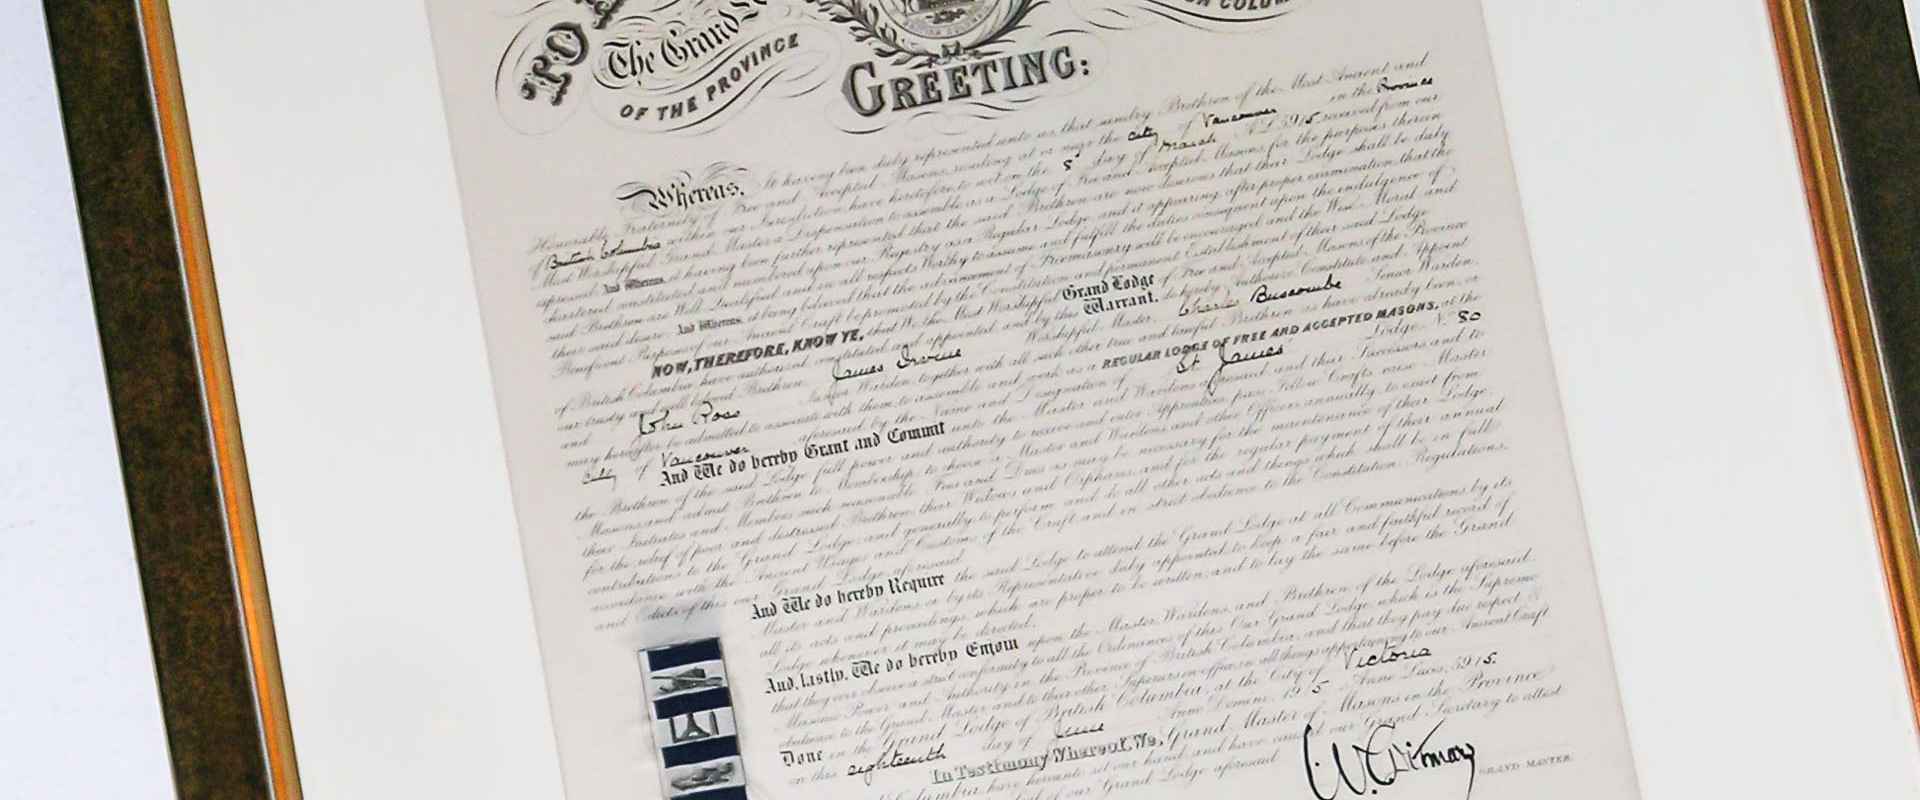 The Grand
OF THE PROVINCE
GREETING:
Whereas, It having been duly represented unto us that sundry Brethren of the Most Ancient and
Honourable Fraternity of Free and Accepted Masons, residing at or near the City of Vancouver in the Province
of British Columbia within our Jurisdiction have heretofore to wit on the 8 day of March A.L. 5915 received from our
Most Worshipful Grand Master a Dispensation to assemble as a Lodge of Free and Accepted Masons for the purposes therein
expressed. And Whereas, it having been further represented that the said Brethren are now desirous that their Lodge shall be duly
chartered constituted and numbered upon our Registry as a Regular Lodge, and it appearing, after proper examination that the
said Brethren are Well Qualified and in all respects Worthy to assume and fulfill the duties consequent upon the indulgence of
their said desire. And Whereas, it being believed that the advancement of Freemasonry will be encouraged and the Wise Moral and
Beneficent Purposes of our Ancient Craft be promoted by the Constitution and permanent Establishment of their said Lodge
NOW, THEREFORE, KNOW YE, that We the Most Worshipful Grand Lodge of Free and Accepted Masons of the Province
of British Columbia have authorised constituted and appointed and by this Warrant, do hereby authorise Constitute and Appoint
our trusty and well beloved Brethren James Irvine Worshipful Master, Charles Buscombe Senior Warden,
and John Ross Junior Warden together with all such other true and lawful Brethren as have already been, or
may hereafter be admitted to associate with them to assemble and work as a REGULAR LODGE OF FREE AND ACCEPTED MASONS, at the
City of Vancouver aforesaid by the Name and Designation of St. James' Lodge No. 80
And We do hereby Grant and Commit unto the Master and Wardens aforesaid and their Successors and to
the Brethren of the said Lodge full power and authority to receive and enter Apprentices, pass Fellow Crafts, raise Master
Masons and admit Brethren to Membership, to choose a Master and Wardens and other Officers annually, to exact from
their Initiates and Members such reasonable Fees and Dues as may be necessary for the maintenance of their Lodge,
for the relief of poor and distressed Brethren their Widows and Orphans, and for the regular payment of their annual
contributions to the Grand Lodge and generally to perform and do all other acts and things which shall be in full
accordance with the Ancient Usages and Customs of the Craft and in strict obedience to the Constitution, Regulations,
and Edicts of this our Grand Lodge aforesaid.
And We do hereby Require the said Lodge to attend the Grand Lodge at all Communications by its
Master and Wardens or by its Representative duly appointed, to keep a fair and faithful record of
all its acts and proceedings, which are proper to be written, and to lay the same before the Grand
Lodge whenever it may be directed.
And, lastly, We do hereby Enjoin upon the Master, Wardens, and Brethren of the Lodge aforesaid
that they ever observe a strict conformity to all the Ordinances of this Our Grand Lodge which is the Supreme
Masonic Power and Authority in the Province of British Columbia, and that they pay due respect &
obedience to the Grand Master and to their other Superior officers, in all things appertaining to our Ancient Craft.
Done in the Grand Lodge of British Columbia, at the City of Victoria
on this eighteenth day of June Anno Domini, 1915, Anno Lucis, 5915.
In Testimony Whereof, We, Grand Master of Masons in the Province
of British Columbia have hereunto set our hand and have caused our Grand Secretary to attest
GRAND MASTER.
of our Grand Lodge aforesaid